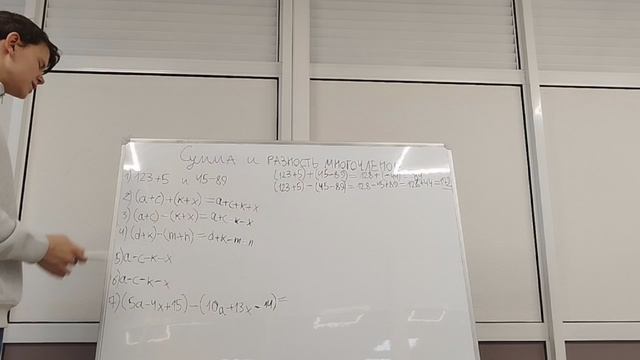 Сумма и разность многочленов
1) 123+5 и 45-89 (123+5)+(45-89)=128+(-44)=84
(123+5)-(45-89)=128-45+89=128+44=172
2) (a+c)+(k+x)=a+c+k+x
3) (a+c)-(k+x)=a+c-k-x
4) (d+k)-(m+n)=d+k-m-n
5) a-c-k-x
6) a-c-k-x
7) (5a-4x+15)-(10a+13x-11)=